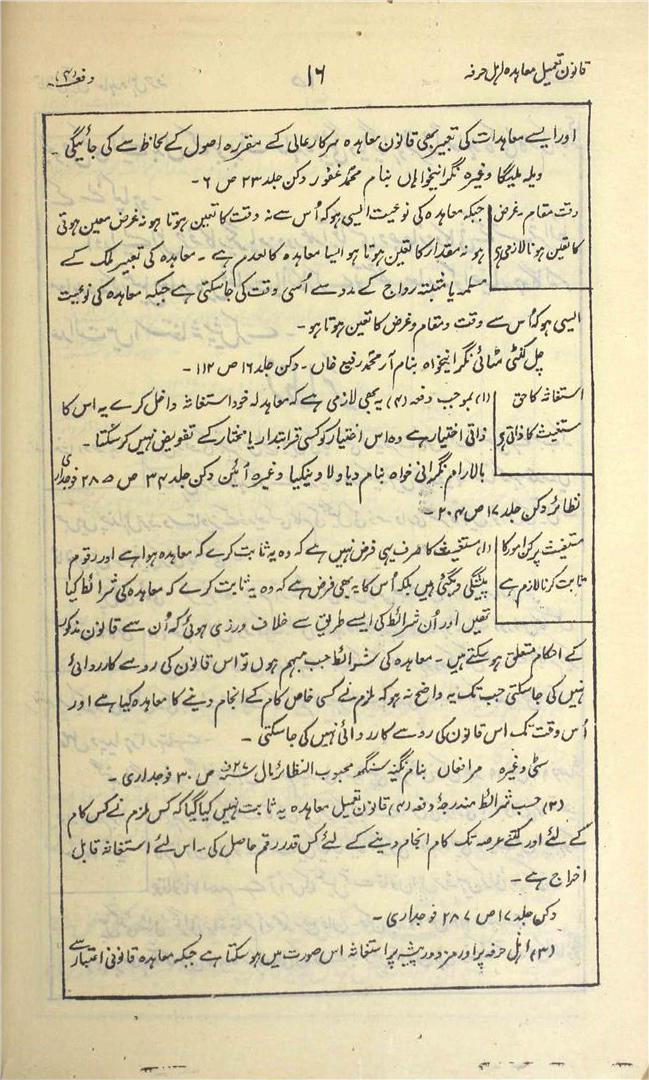 قانون تعمیل معاہدہ اہل حرفہ ۱۶ دفعہ (۴)
اور ایسے معاہدات کی تعبیر بھی قانون معاہدہ سرکار عالی کے مقررہ اصول کے لحاظ سے کی جائیگی ۔
ویلہ ملیگا وغیرہ نگرانیخواہاں بنام محمد غفور دکن جلد ۲۳ ص ۶ ۔
وقت مقام ۔ غرض
کا تعین ہونا لازمی ہے
جبکہ معاہدہ کی نوعیت ایسی ہو کہ اُس سے نہ وقت کا تعین ہوتا ہو نہ غرض معین ہوتی
ہو نہ مقدار کا تعین ہوتا ہو ایسا معاہدہ کالعدم ہے ۔ معاہدہ کی تعبیر ملک کے
مسلمہ یا مثبتہ رواج کے مدد سے اُسی وقت کی جاسکتی ہے جبکہ معاہدہ کی نوعیت
ایسی ہو کہ اُس سے وقت و مقام و غرض کا تعین ہوتا ہو ۔
چل کنٹی مٹائی نگرانیخواہ بنام آر محمد رفیع خاں ۔ دکن جلد ۱۶ ص ۱۱۲ ۔
استغاثہ کا حق
مستغیث کا ذاتی ہے
(۱) بموجب دفعہ (۴) یہ بھی لازمی ہے کہ معاہد لہ خود استغاثہ داخل کرے یہ اس کا
ذاتی اختیار ہے وہ اس اختیار کو کسی قرابتدار یا مختار کے تفویض نہیں کرسکتا ۔
بالارام نگرانی خواہ بنام دیا ولا وینکیا وغیرہ آئین دکن جلد ۳۴ ص ۲۸۵ فوجداری
نظائر دکن جلد ۱۷ ص ۲۰۴ ۔
مستغیث پر کن امور کا
ثابت کرنا لازم ہے
(۱) مستغیث کا صرف یہی فرض نہیں ہے کہ وہ یہ ثابت کرے کہ معاہدہ ہوا ہے اور رقوم
پیشگی دیگئی ہیں بلکہ اُس کا یہ بھی فرض ہے کہ وہ یہ ثابت کرے کہ معاہدہ کی شرائط کیا
تھیں اور اُن شرائط کی ایسے طریق سے خلاف ورزی ہوئی کہ اُن سے قانون مذکور
کے احکام متعلق ہوسکتے ہیں ۔ معاہدہ کی شرائط جب مبہم ہوں تو اس قانون کی رو سے کارروائی
نہیں کی جاسکتی جب تک یہ واضح نہ ہو کہ ملزم نے کسی خاص کام کے انجام دینے کا معاہدہ کیا ہے اور
اُس وقت تک اس قانون کی رو سے کارروائی نہیں کی جاسکتی ۔
سٹی وغیرہ مرافعان بنام نگینہ سنگھ محبوب النظائر مال ص ۳۰ فوجداری ۔
(۲) حسب شرائط مندرجہ دفعہ (۴) قانون تعمیل معاہدہ یہ ثابت نہیں کیا گیا کہ کس ملزم نے کس کام
کے لئے اور کتنے عرصہ تک کام انجام دینے کے لئے کس قدر رقم حاصل کی ۔ اس لئے استغاثہ قابل
اخراج ہے ۔
دکن جلد ۱۷ ص ۲۸۷ فوجداری ۔
(۳) اہل حرفہ پر اور مزدور پیشہ پر استغاثہ اس صورت میں ہوسکتا ہے جبکہ معاہدہ قانونی اعتبار سے